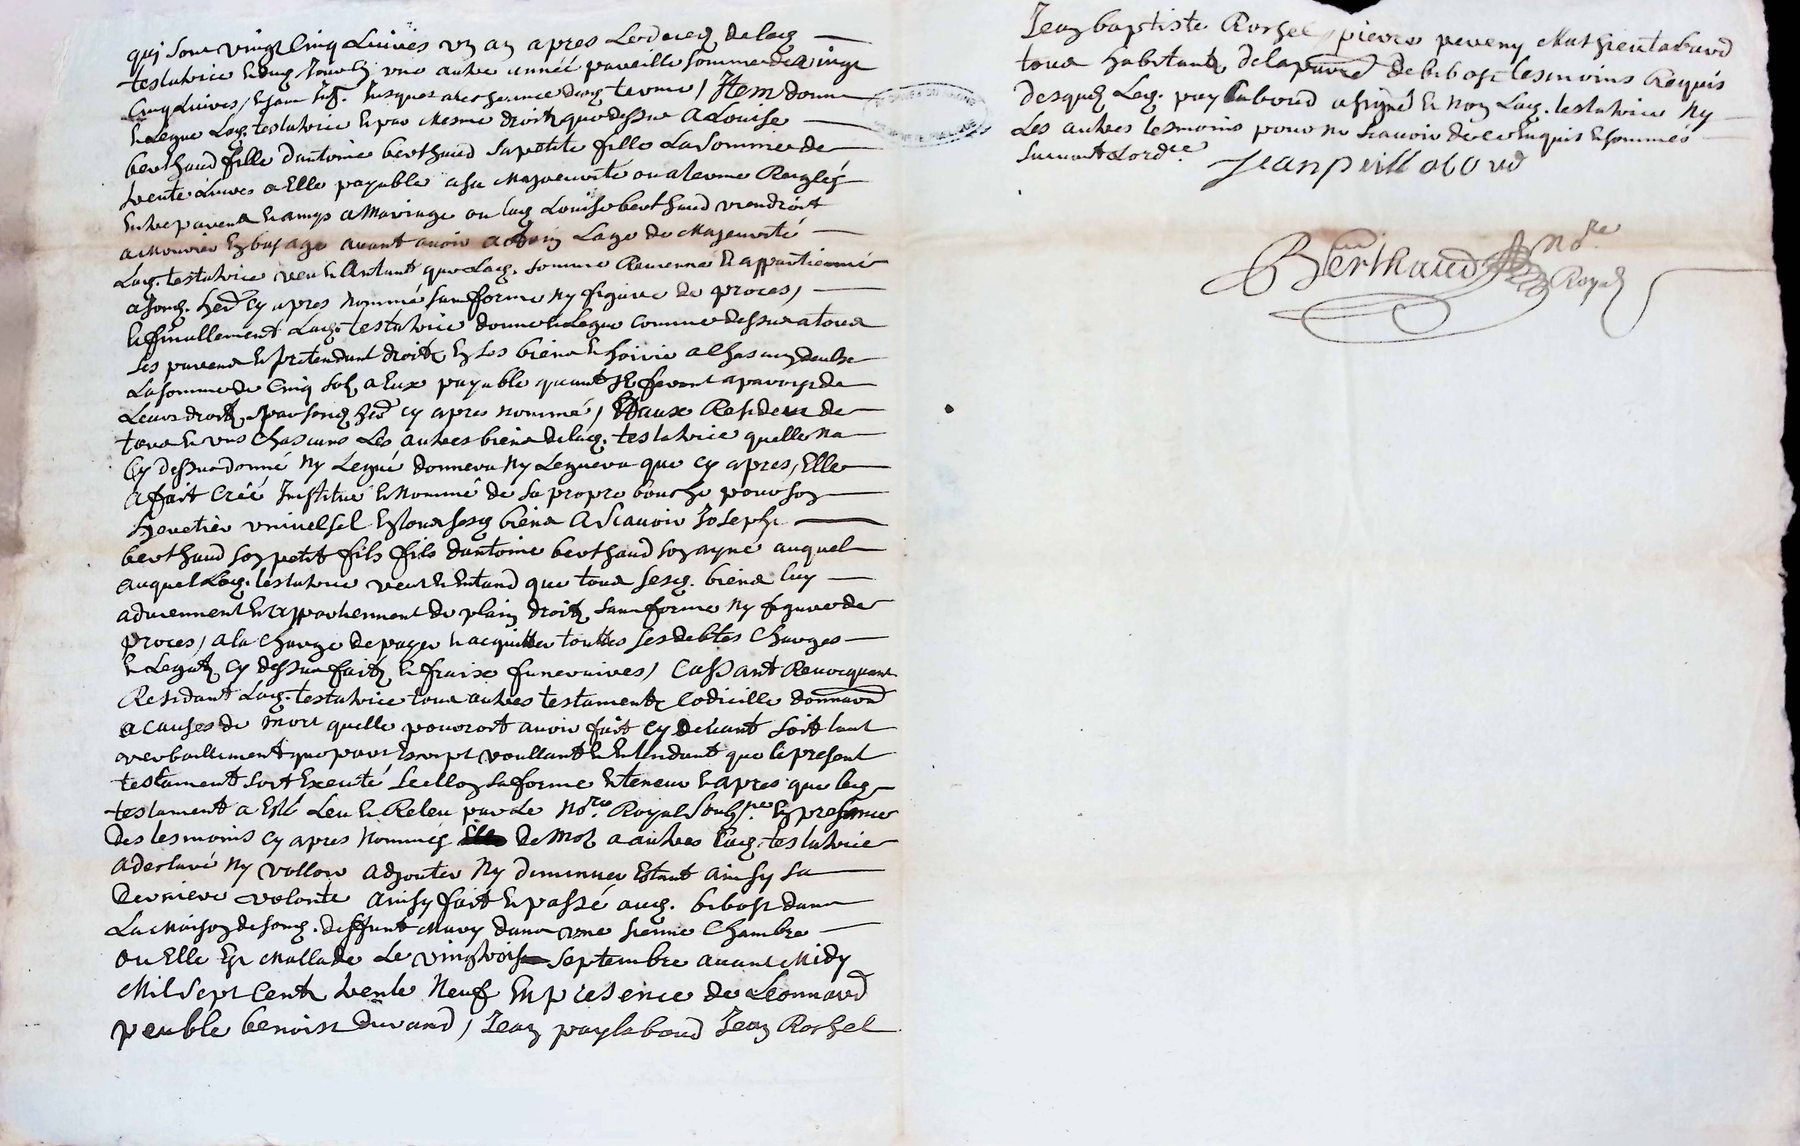 qui sont vingt Cinq Livres un an apres Le deceq de lag
testatrice et aug. une autre année pareille somme de vingt
Cinq Livres, jusques a dung terme, Item donne
et Legue Lag. testatrice et par Mesme droit que dessus A Louise
berthaud fille d'antoine berthaud sa petite fille La Somme de
trente Livres a Elle payable a sa Majeurité ou a terme Reglés
Entre parens et amys a Mariage ou lag Louise berthaud viendroit
a Mourir En bas age avant avoir atein Lage de Majeurité
Lag. testatrice veu et Antant que Lad. somme Revienne et appartienne
a song. her. cy apres nommé sans forme ny figure de proces,
et finallement Lag. testatrice donne et Legue comme dessus a tous
Les parens et pretendant droit En Ses biens et hoirie a Chascung deulx
La somme de Cinq sols a Eux payable quant Ils feront aparoir de
Leurs droit, par song her. cy apres nommé, Et aux Residus de
tous et uns Chascuns Les autres biens de lag. testatrice quelle na
Cy dessus donné ny Legué donnera ny Leguera que cy apres, Elle
a fait Créé Institué et Nommé de Sa propre bouche pour son
heretier universel En tous sesg biens A Scavoir Joseph
berthaud son petit fils fils dantoine berthaud son ayné auquel
auquel Lag. testatrice veut et Entand que tous sesg. biens luy
adviennent et appartiennent de plain droit sans forme ny figure de
proces, a la Charge de payer et acquitter touttes ses debtes Charges
et Legats cy dessus faits et fraix funeraires, Cassant Revocquant
Lag. testatrice tous autres testaments Codicille donnaon
a causes de mort quelle pouroit avoir fait cy devant soit tant
verballement que par Escript voullant et Entendant que le present
testament soit Executé Sellon sa forme et teneur et apres que lag
testament a Esté Leu et Releu par Le Nore. Royal Soubne. En presence
des tesmoins cy apres Nommés de Mot a autres Lag. testatrice
a desclaré Ny volloir adjouter Ny diminuer Estant ainsy sa
derniere volonte ainsy fait et passé aug. bibost dans
La Maison de song. deffunt Mary dans une sienne Chambre
ou Elle Est Mallade Le vingtrois septembre avant Midy
Mil Sept Cent trente Neuf En presence de Leonnard
peuble benoist durand, Jean paylaboud Jean Roshel
Jean baptiste Roshel, pierre peveny Mathieu tabard
tous habitants de la parre de bibost tesmoins Requis
desquels Leg. paylaboud a signé et Non Lag. testatrice Ny
Les autres tesmoins pour ne scavoir de ce Enquis et sommés
suivant Lordce.
Jean peillaboud
Berthaud Nore
Royal